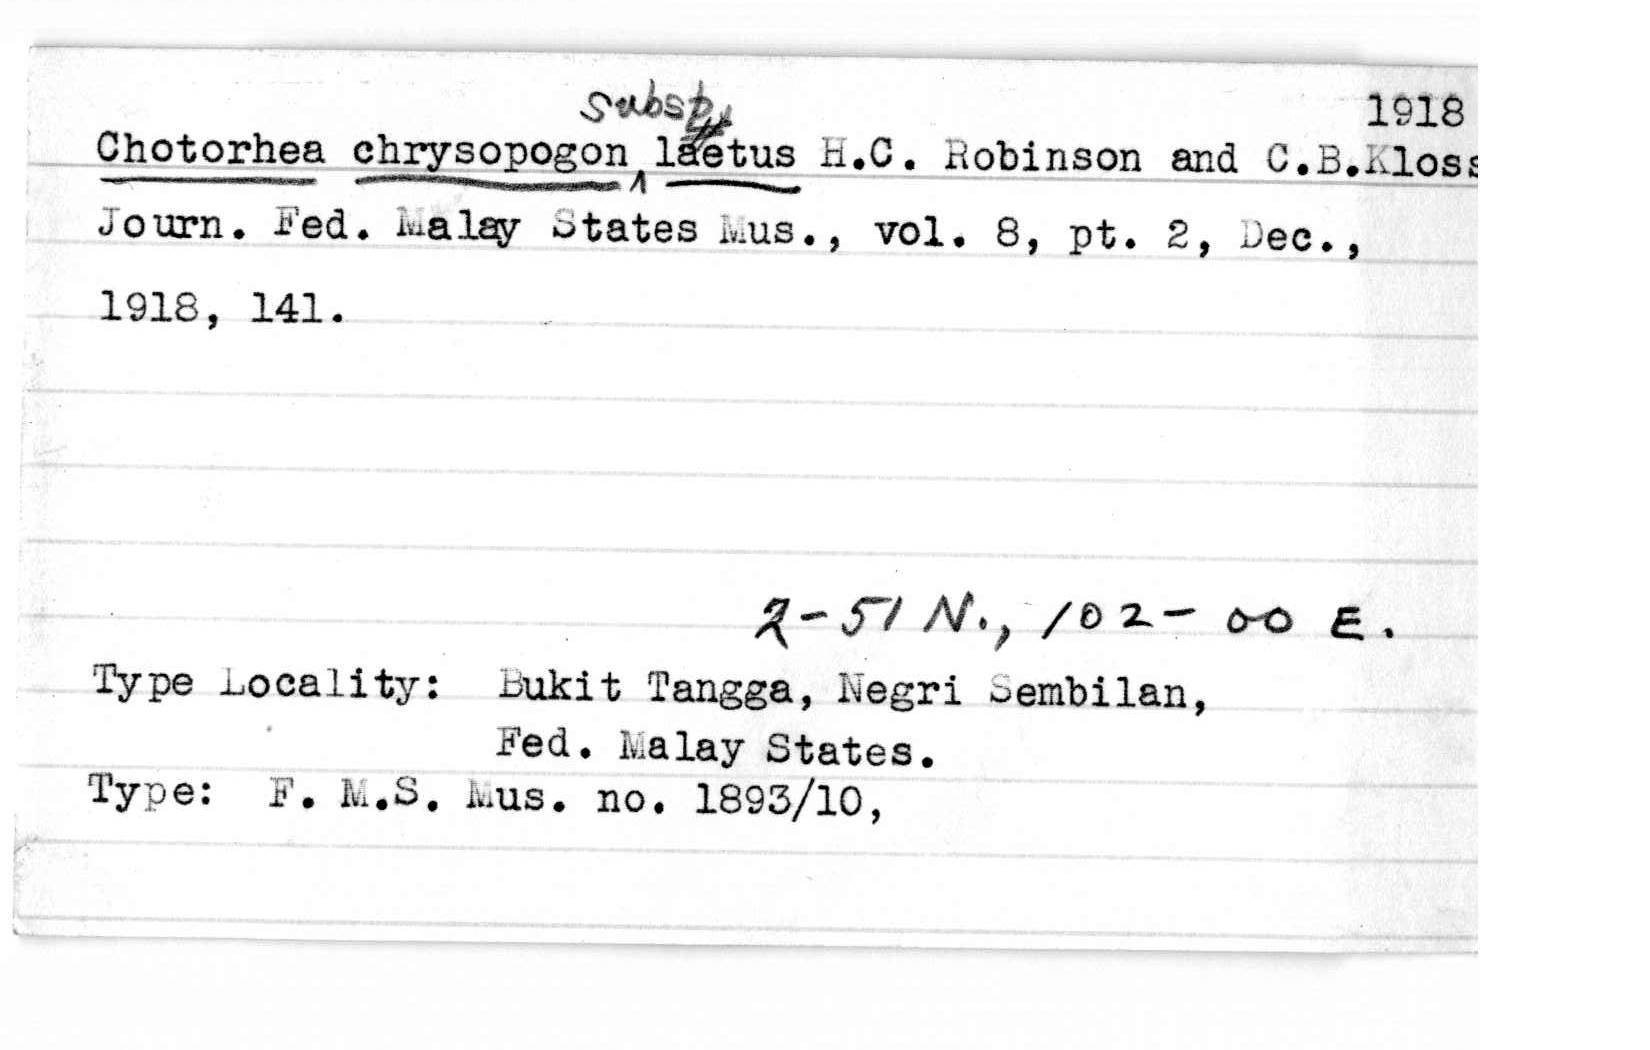 subsp. 1918
Chotorhea chrysopogon laetus H.C. Robinson and C.B.Kloss
Journ. Fed. Malay States Mus., vol. 8, pt. 2, Dec.,
1918, 141.
2-51 N., 102-00 E.
Type Locality: Bukit Tangga, Negri Sembilan,
Fed. Malay States.
Type: F. M.S. Mus. no. 1893/10,